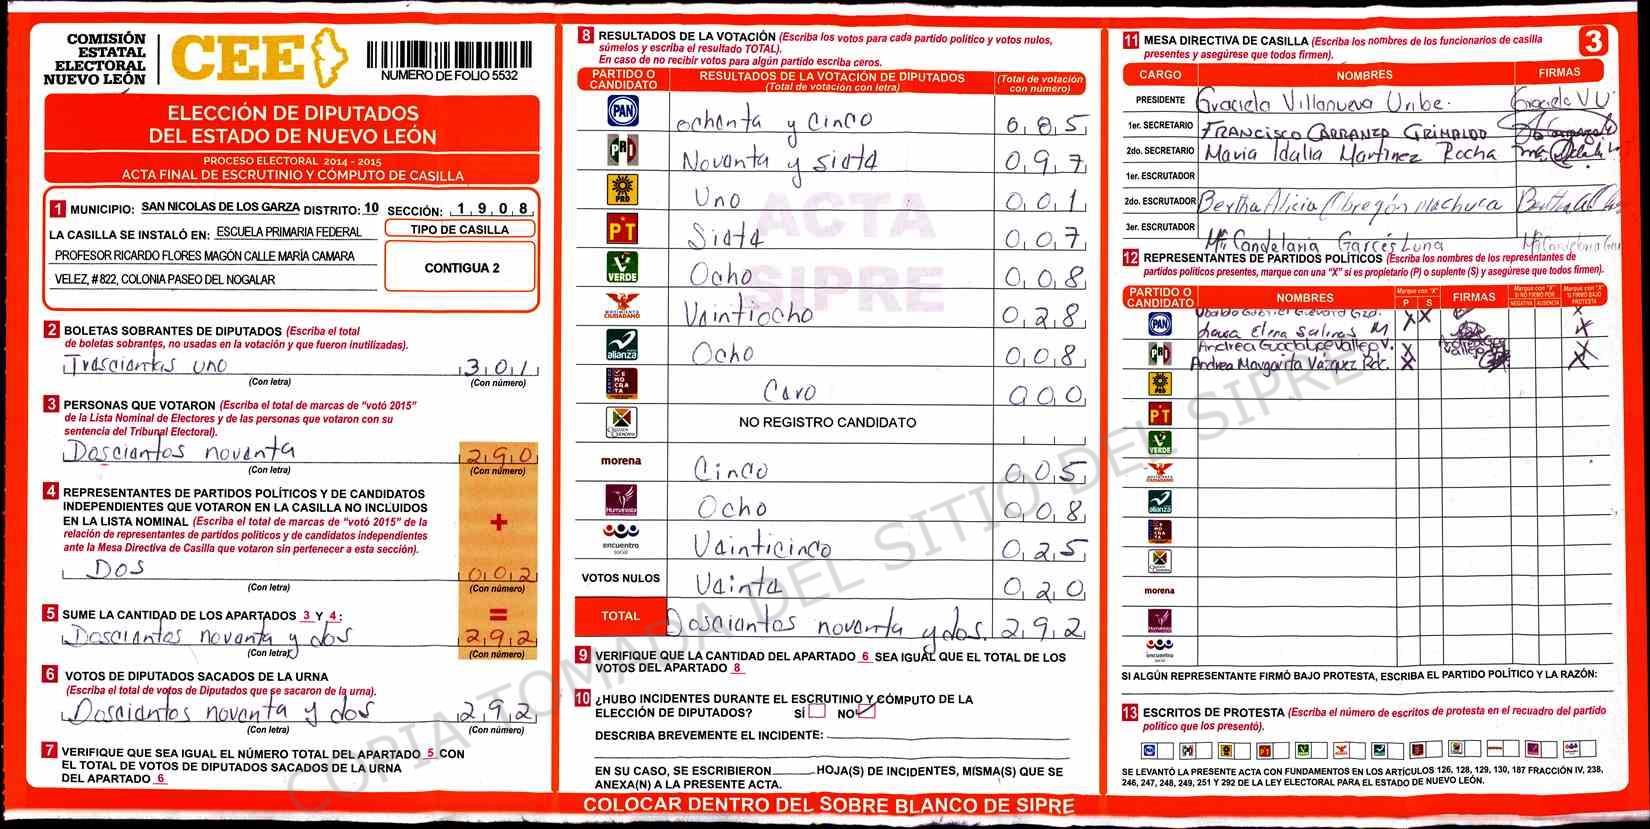 COMISIÓN
ESTATAL
ELECTORAL
NUEVO LEÓN
CEE
NUMERO DE FOLIO 5532
ELECCIÓN DE DIPUTADOS
DEL ESTADO DE NUEVO LEÓN
PROCESO ELECTORAL 2014 - 2015
ACTA FINAL DE ESCRUTINIO Y CÓMPUTO DE CASILLA
1 MUNICIPIO: SAN NICOLAS DE LOS GARZA DISTRITO: 10 SECCIÓN: 1908
LA CASILLA SE INSTALÓ EN: ESCUELA PRIMARIA FEDERAL
PROFESOR RICARDO FLORES MAGÓN CALLE MARÍA CAMARA
VELEZ, #822, COLONIA PASEO DEL NOGALAR
TIPO DE CASILLA
CONTIGUA 2
2 BOLETAS SOBRANTES DE DIPUTADOS (Escriba el total
de boletas sobrantes, no usadas en la votación y que fueron inutilizadas).
Trescientas uno 301
(Con letra) (Con número)
3 PERSONAS QUE VOTARON (Escriba el total de marcas de "votó 2015"
de la Lista Nominal de Electores y de las personas que votaron con su
sentencia del Tribunal Electoral).
Doscientos noventa 290
(Con letra) (Con número)
4 REPRESENTANTES DE PARTIDOS POLÍTICOS Y DE CANDIDATOS
INDEPENDIENTES QUE VOTARON EN LA CASILLA NO INCLUIDOS
EN LA LISTA NOMINAL (Escriba el total de marcas de "votó 2015" de la
relación de representantes de partidos políticos y de candidatos independientes
ante la Mesa Directiva de Casilla que votaron sin pertenecer a esta sección).
+
DOS 002
(Con letra) (Con número)
5 SUME LA CANTIDAD DE LOS APARTADOS 3 Y 4: =
Doscientos noventa y dos 292
(Con letra) (Con número)
6 VOTOS DE DIPUTADOS SACADOS DE LA URNA
(Escriba el total de votos de Diputados que se sacaron de la urna).
Doscientos noventa y dos 292
(Con letra) (Con número)
7 VERIFIQUE QUE SEA IGUAL EL NÚMERO TOTAL DEL APARTADO 5 CON
EL TOTAL DE VOTOS DE DIPUTADOS SACADOS DE LA URNA
DEL APARTADO 6
8 RESULTADOS DE LA VOTACIÓN (Escriba los votos para cada partido político y votos nulos,
súmelos y escriba el resultado TOTAL).
En caso de no recibir votos para algún partido escriba ceros.
PARTIDO O CANDIDATO RESULTADOS DE LA VOTACIÓN DE DIPUTADOS (Total de votación con letra) (Total de votación con número)
PAN ochenta y cinco 085
PRI Noventa y siete 097
PRD Uno 001
PT Siete 007
VERDE Ocho 008
MOVIMIENTO CIUDADANO Veintiocho 028
alianza Ocho 008
DEMOCRATA Cero 000
CRUZADA CIUDADANA NO REGISTRO CANDIDATO
morena Cinco 005
Humanista Ocho 008
encuentro social Veinticinco 025
VOTOS NULOS Veinte 020
TOTAL Doscientos noventa y dos. 292
9 VERIFIQUE QUE LA CANTIDAD DEL APARTADO 6 SEA IGUAL QUE EL TOTAL DE LOS
VOTOS DEL APARTADO 8
10 ¿HUBO INCIDENTES DURANTE EL ESCRUTINIO Y CÓMPUTO DE LA
ELECCIÓN DE DIPUTADOS? SÍ NO
DESCRIBA BREVEMENTE EL INCIDENTE:
EN SU CASO, SE ESCRIBIERON HOJA(S) DE INCIDENTES, MISMA(S) QUE SE
ANEXA(N) A LA PRESENTE ACTA.
COLOCAR DENTRO DEL SOBRE BLANCO DE SIPRE
ACTA
SIPRE
COPIA TOMADA DEL SITIO DEL SIPRE
3
11 MESA DIRECTIVA DE CASILLA (Escriba los nombres de los funcionarios de casilla
presentes y asegúrese que todos firmen).
CARGO NOMBRES FIRMAS
PRESIDENTE Graciela Villanueva Uribe. Graciela V U
1er. SECRETARIO FRANCISCO CARRANZO GRIMALDO
2do. SECRETARIO Maria Idalia Martinez Rocha
1er. ESCRUTADOR
2do. ESCRUTADOR Bertha Alicia Obregón Machuca
3er. ESCRUTADOR Ma Candelaria Garcés Luna
12 REPRESENTANTES DE PARTIDOS POLÍTICOS (Escriba los nombres de los representantes de
partidos políticos presentes, marque con una "X" si es propietario (P) o suplente (S) y asegúrese que todos firmen).
PARTIDO O CANDIDATO NOMBRES Marque con "X" P S FIRMAS Marque con "X" SI NO FIRMÓ POR NEGATIVA AUSENCIA Marque con "X" SI FIRMÓ BAJO PROTESTA
Ubaldo Gabriel Guevara Gzo. X X X
PAN Laura Elena Salinas M X
PRI Andrea Guadalupe Vallejo V. X X
Andrea Margarita Vazquez Rdz. X X
PRD
PT
VERDE
MOVIMIENTO CIUDADANO
alianza
morena
Humanista
encuentro social
SI ALGÚN REPRESENTANTE FIRMÓ BAJO PROTESTA, ESCRIBA EL PARTIDO POLÍTICO Y LA RAZÓN:
13 ESCRITOS DE PROTESTA (Escriba el número de escritos de protesta en el recuadro del partido
político que los presentó).
SE LEVANTÓ LA PRESENTE ACTA CON FUNDAMENTOS EN LOS ARTÍCULOS 126, 128, 129, 130, 187 FRACCIÓN IV, 238,
246, 247, 248, 249, 251 Y 292 DE LA LEY ELECTORAL PARA EL ESTADO DE NUEVO LEÓN.